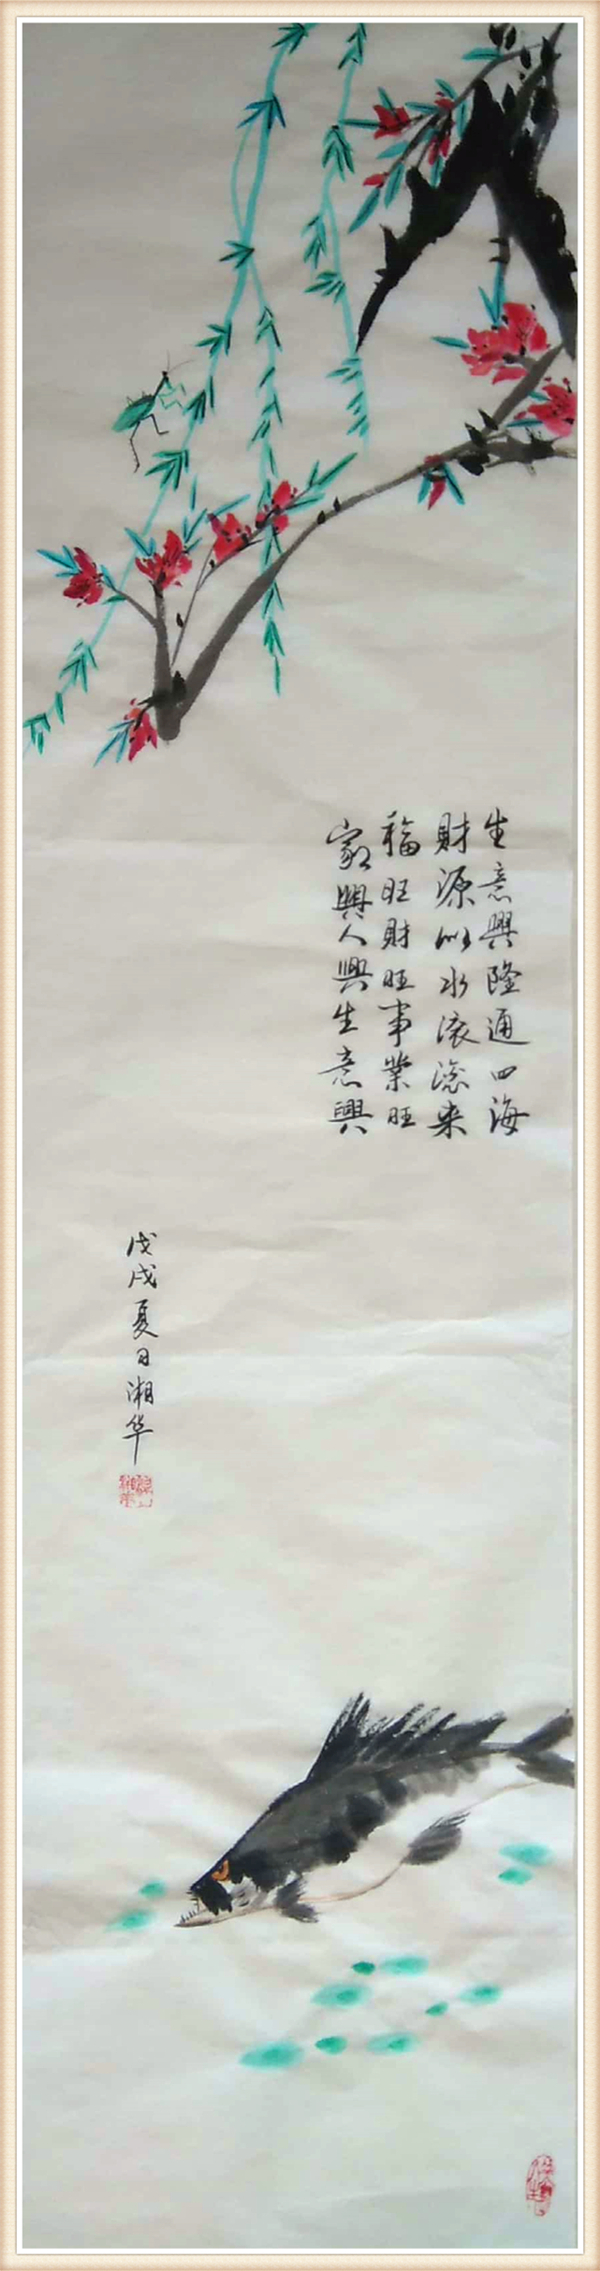 生意興隆通四海
財源似水滚滚来
福旺財旺事業旺
家興人興生意興
戊戌夏日湘华